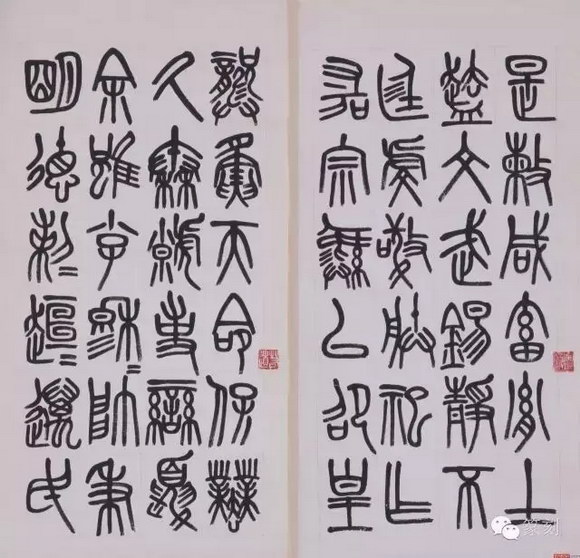 龏夤天命保業
厥秦虩事蠻夏
余雖小子穆穆帥秉
明德剌剌趄趄邁民
是敕咸畜胤士
文武錫靜不
廷虔敬朕祀乍
宗彝以卲皇
篆刻